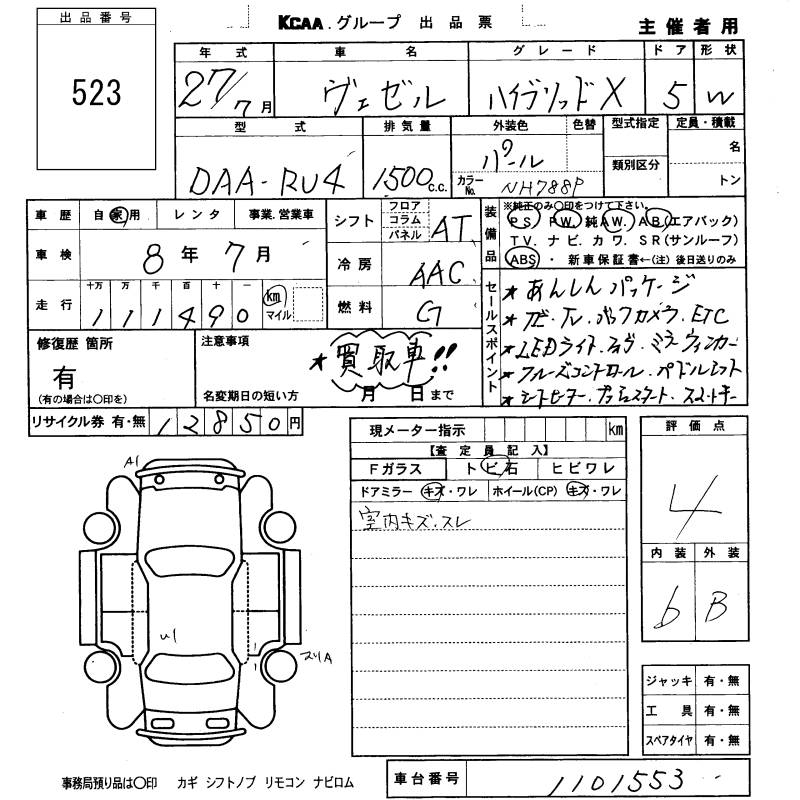 出品番号
523
KCAA.グループ 出品票
主催者用
年式 車名 グレード ドア 形状
27/7月 ヴェゼル ハイブリッドX 5 W
型式 排気量 外装色 色替 型式指定 定員・積載
DAA-RU4 1500c.c. パール 名
カラーNo. NH788P 類別区分 トン
車歴 自家用 レンタ 事業.営業車
車検 8年7月
走行 十万 万 千 百 十 一 km マイル
1 1 1 4 9 0
シフト フロア コラム パネル AT
冷房 AAC
燃料 G
装備品
※純正のみ〇印をつけて下さい。
PS. PW. 純AW. AB(エアバック)
TV. ナビ. カワ. SR(サンルーフ)
ABS ・ 新車保証書←(注)後日送りのみ
セールスポイント
★あんしんパッケージ
★ナビ・TV・バックカメラ・ETC
★LEDライト・フォグ・ミラーウィンカー
★クルーズコントロール・パドルシフト
★シートヒーター・プッシュスタート・スマートキー
修復歴 箇所
有
(有の場合は〇印を)
注意事項
★買取車!!
名変期日の短い方 月 日まで
リサイクル券 有・無 12850円
現メーター指示 km
【査定員記入】
Fガラス トビ石 ヒビワレ
ドアミラー キズ・ワレ ホイール(CP) キズ・ワレ
室内キズ・スレ
評価点
4
内装 外装
b B
A1
U1
スリA
ジャッキ 有・無
工具 有・無
スペアタイヤ 有・無
事務局預り品は〇印 カギ シフトノブ リモコン ナビロム
車台番号 1101553